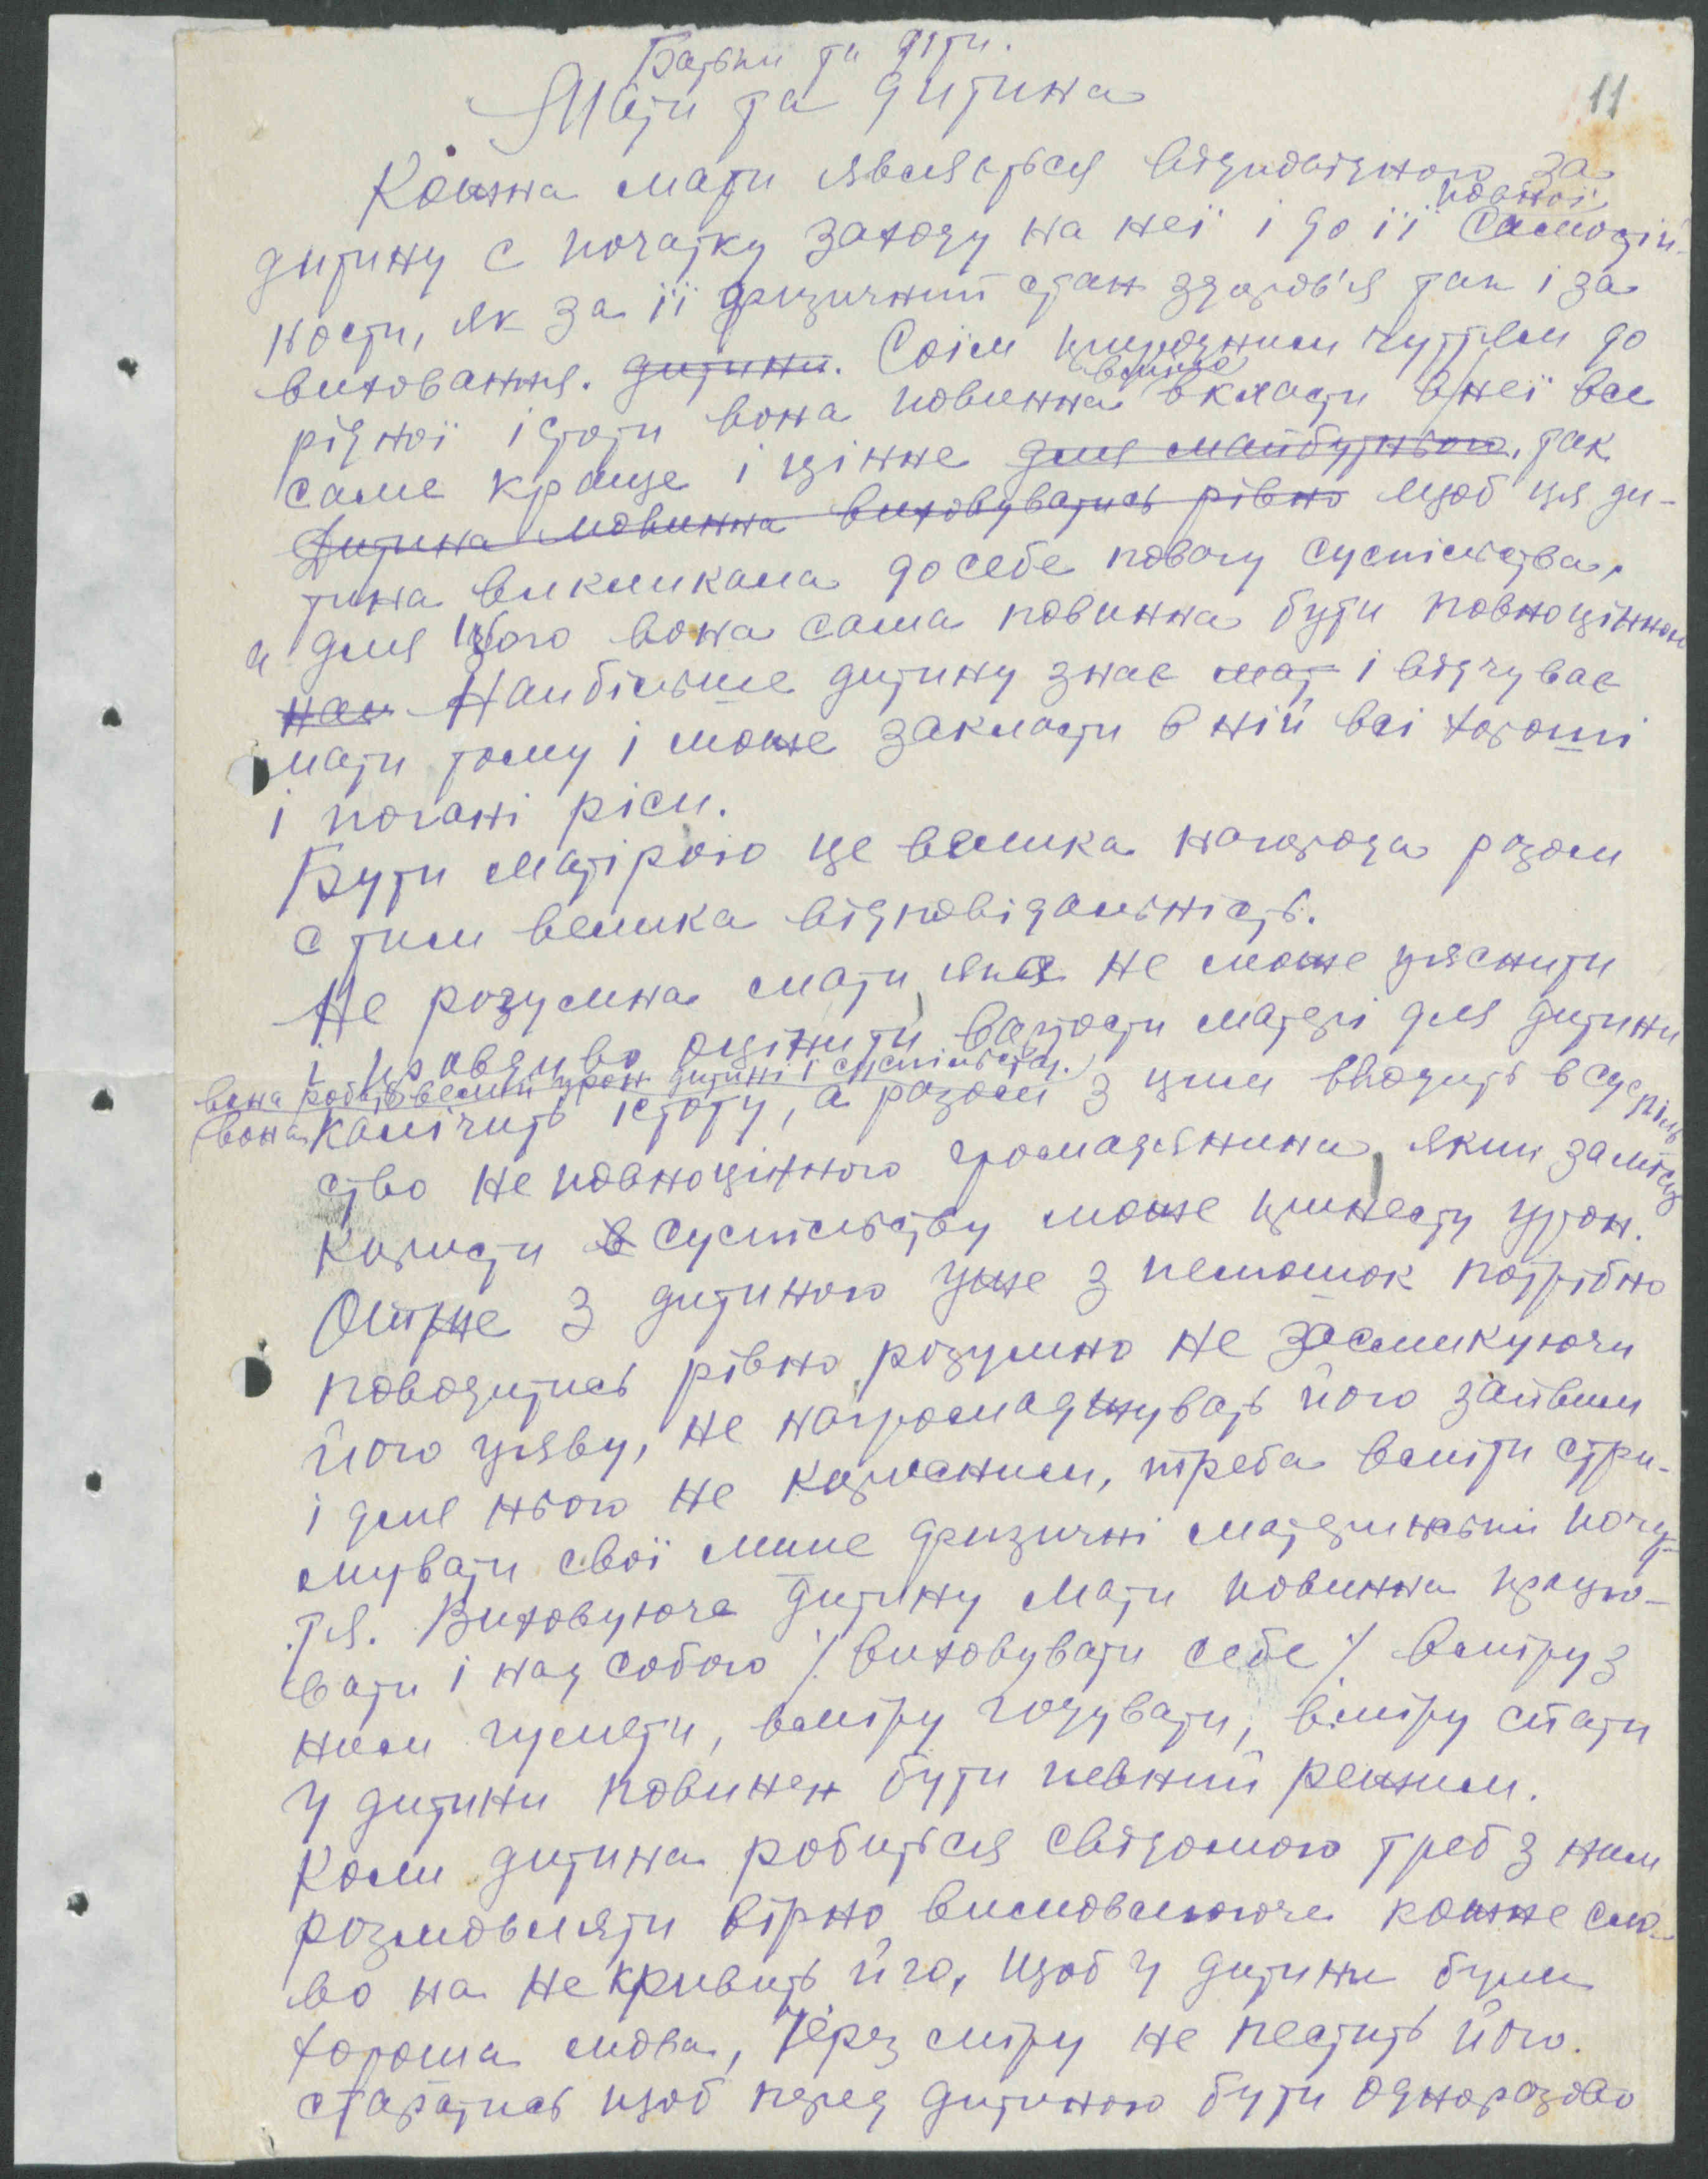 Батьки та діти.
Мати та дитина
11
Кожна мати являється відповідною за
повної
дитину с початку заходу на неї і до її самодій-
ности, як за її физичний стан здоров'я так і за
виховання. дитини. Своїм природним чуттям до
рідної істоти вона повинна вміло вкласти в неї все
саме краще і цінне для майбутнього, так
Дитина повинна виховуватись рівно щоб ця ди-
тина викликала до себе повагу суспільства,
а для цього вона сама повинна бути повноцінною
Найбільше дитину знає мат і відчуває
мати тому і може закласти в ній всі хороші
і погані риси.
Бути матірою це велика нагорода разом
с тим велика відповідальність.
Не розумна мати яка не може уяснити
і правдиво оцінити вартости матері для дитини
вона робить великий урон дитині і суспільству.
(вона) калічить істоту, а разом з цим вводить в суспіль
ство не повноцінного громадянина, який замісць
користи в суспільству може принести урон.
Отже з дитиною уже з пелюшок потрібно
поводитись рівно розумно не засмикуючи
його уяву, не нагромаджувать його зайвим
і для нього не корисним, треба вміти стри-
мувати свої лише физичні материнські почу-
тя. Виховуюче дитину мати повинна працю-
вати і над собою /виховувати себе/ вміру з
ним гуляти, вміру годувати, вміру спати
У дитини повинен бути певний режим.
Коли дитина робиться свідомою треб з ним
розмовляти вірно вимовляюче кожне сло-
во на не кривить його, щоб у дитини були
хороша мова, Через міру не пестить його.
старатись щоб перед дитиною бути одноразово